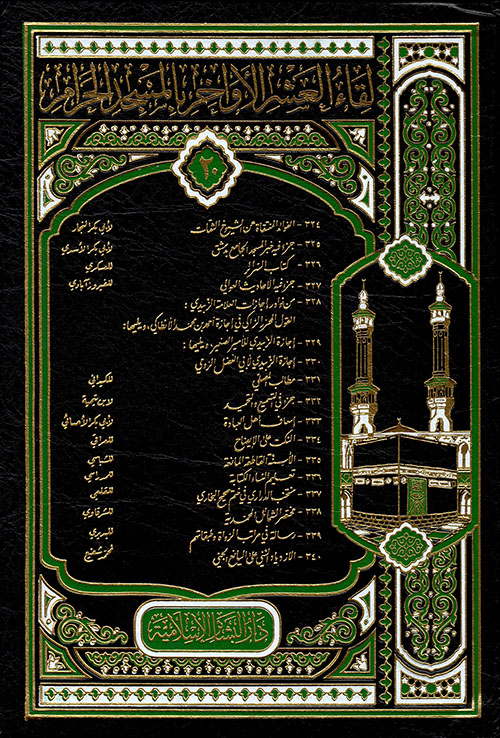 لقاء العشر الأواخر بالمسجد الحرام
٢٠
٣٢٤ - الفوائد المنتقاة عن الشيوخ الثقات لأبي بكر النجار
٣٢٥ - جزء فيه خبر المسجد الجامع بدمشق لأبي بكر الأسدي
٣٢٦ - كتاب السرائر للعسكري
٣٢٧ - جزء فيه الأحاديث العوالي للفيروزآبادي
٣٢٨ - من نوادر إجازات العلامة الزبيدي :
القول المحرر الزاكي في إجازة أحمد بن محمد الأنطاكي ، ويليها :
٣٢٩ - إجازة الزبيدي للأمير الصغير ، ويليها :
٣٣٠ - إجازة الزبيدي لأبي الفضل الزوي
٣٣١ - مطالب المصلي للكيداني
٣٣٢ - جزء في التسبيح والتحميد لابن تيمية
٣٣٣ - إسعاف أهل العبادة
٣٣٤ - النكت على الإيضاح
٣٣٥ - الأسنة القاطعة المانعة
٣٣٦ - تعليم النساء الكتابة
٣٣٧ - منتخب الدراري في ختم صحيح البخاري
٣٣٨ - مختصر الشمائل المحمدية
٣٣٩ - رسالة في مراتب الرواة وطبقاتهم
٣٤٠ - الازدياد السني على اليانع الجني محمد شفيع
دار البشائر الإسلامية